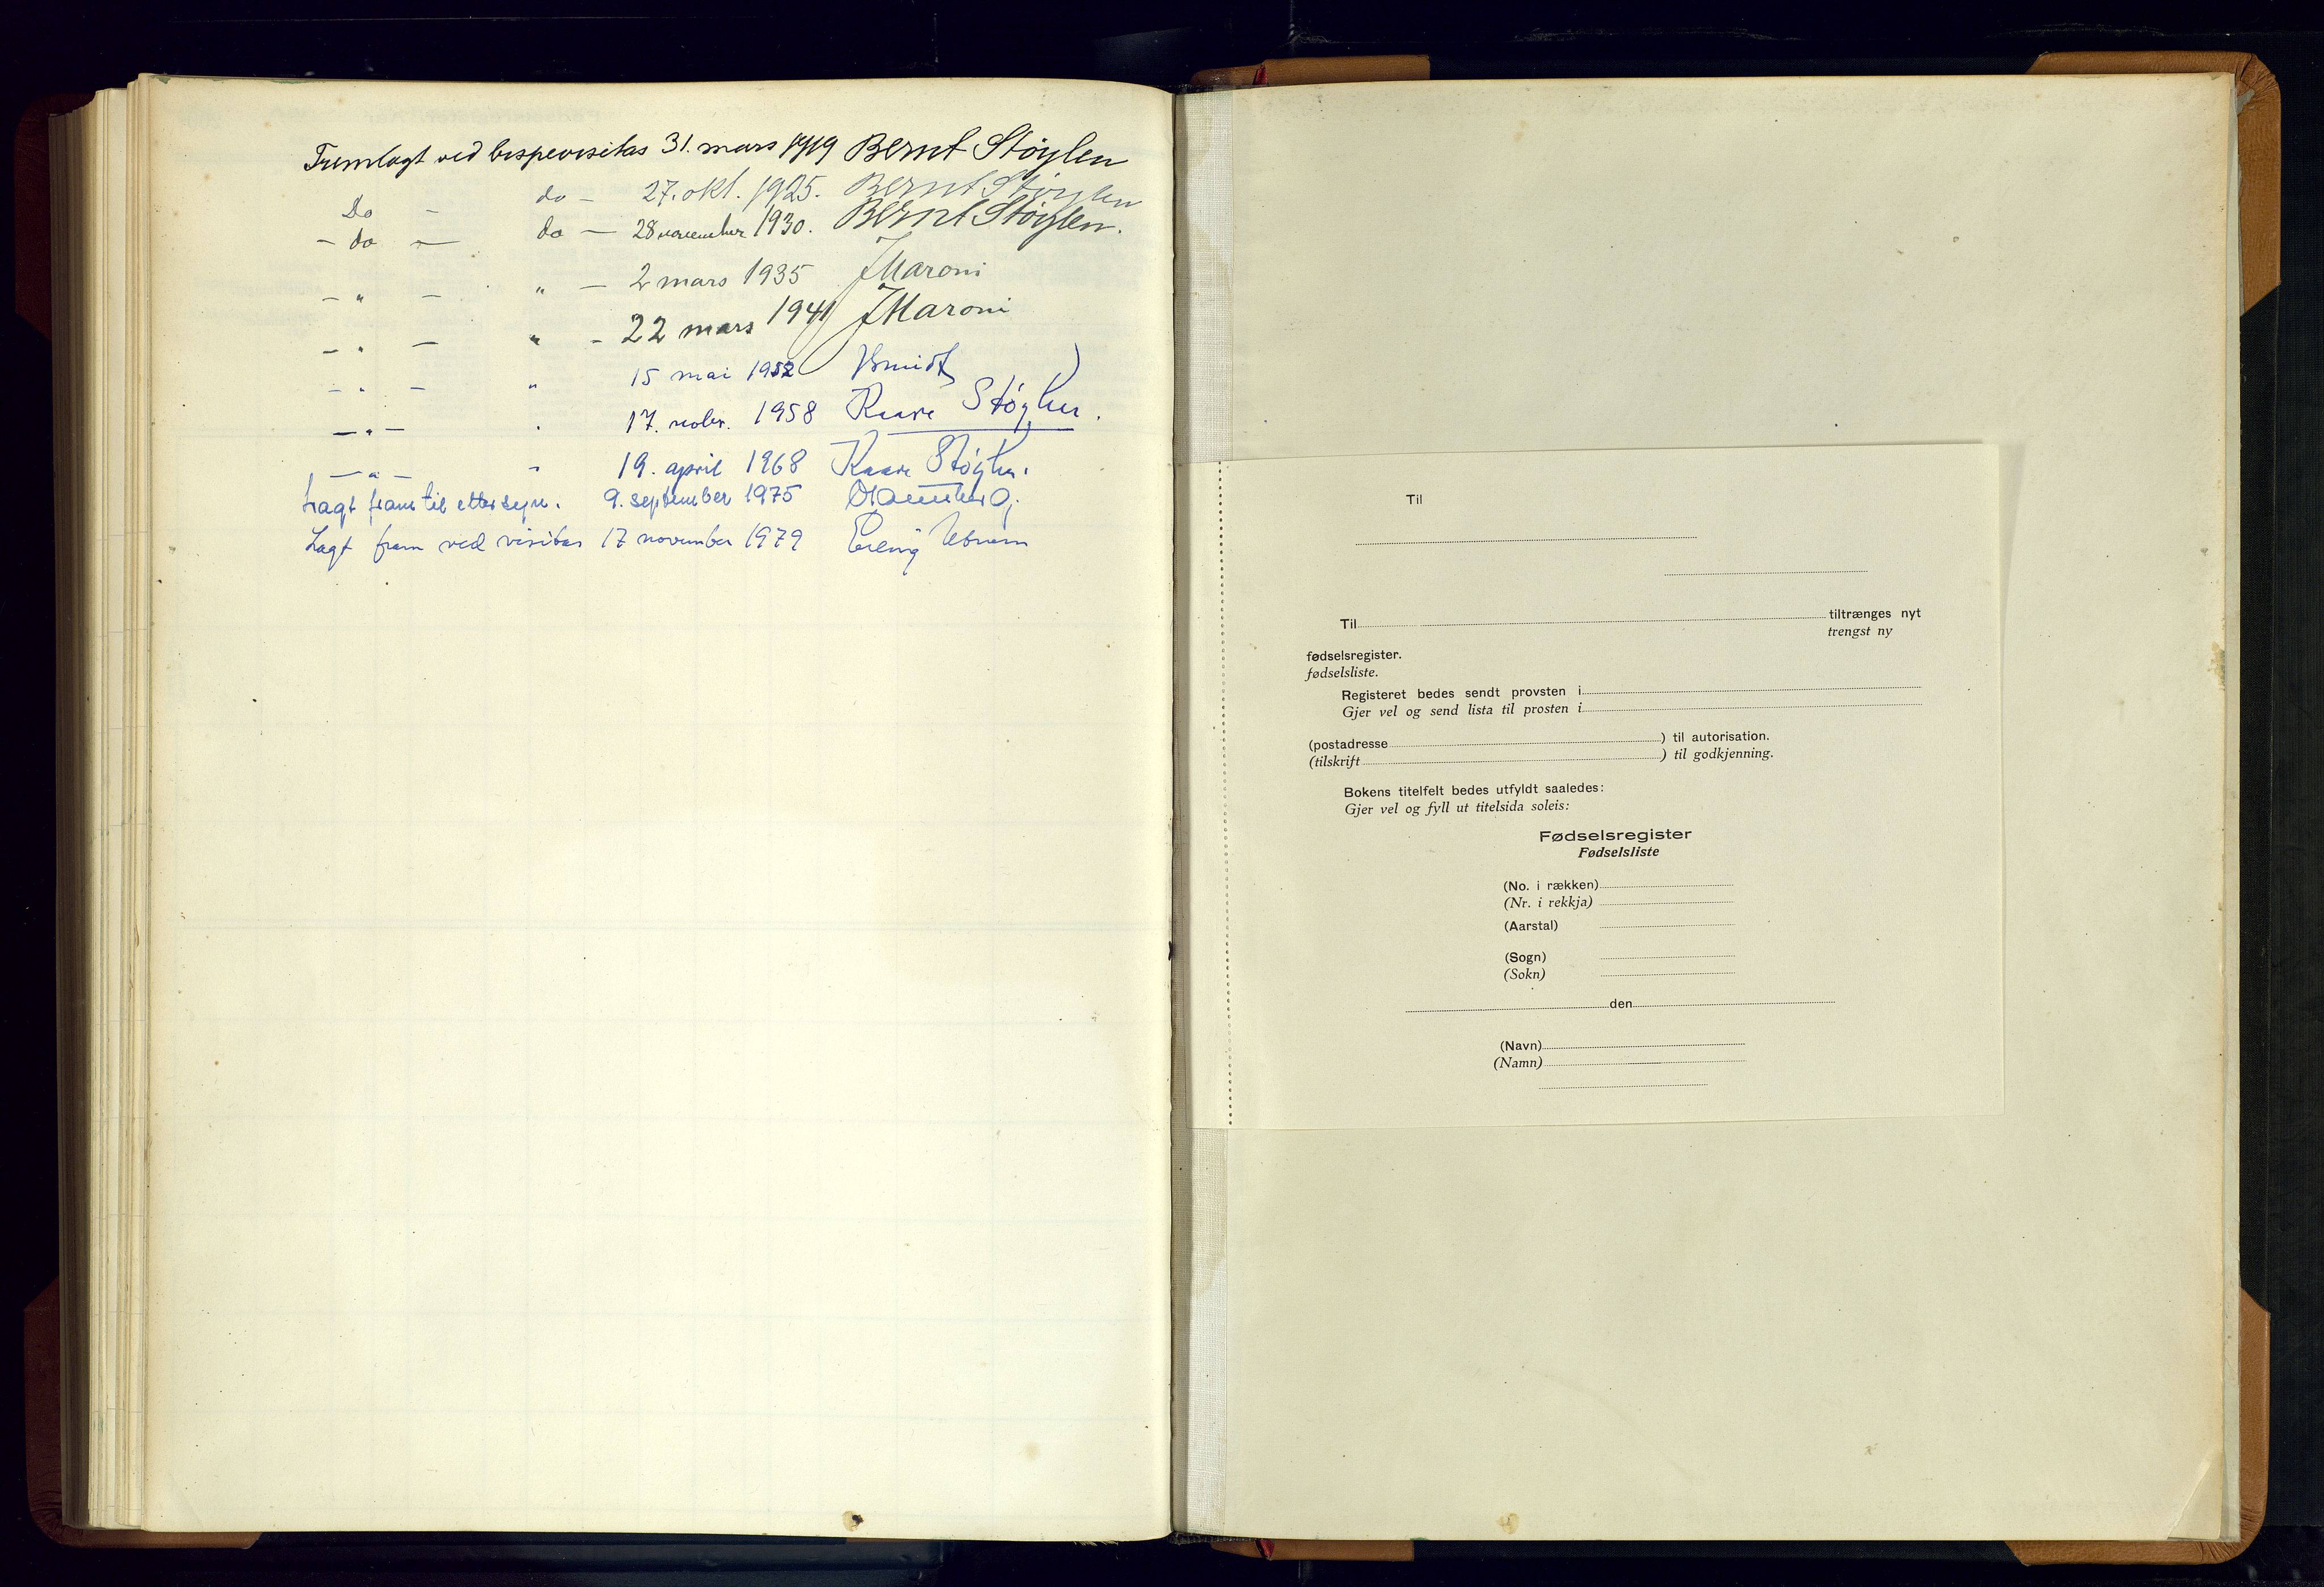 Fremlagt ved bispevisitas 31. mars 1919 Bernt Støylen
Do - do - 27. okt. 1925. Bernt Støylen
- do - do - 28 november 1930. Bernt Støylen.
- " - " - 2 mars 1935 JMaroni
- " - " - 22 mars 1941 JMaroni
- " - " 15 mai 1952 Smidt
- " - " 17. novbr. 1958 Kaare Støylen.
- " - " 19. april 1968 Kaare Støylen.
Lagt fram til ettersyn. 9. september 1975
Lagt fram ved visitas 17 november 1979 Erling Utnem
Til
Til tiltrænges nyt
trengst ny
fødselsregister.
fødselsliste.
Registeret bedes sendt provsten i
Gjer vel og send lista til prosten i
(postadresse ) til autorisation.
(tilskrift ) til godkjenning.
Bokens titelfelt bedes utfyldt saaledes:
Gjer vel og fyll ut titelsida soleis:
Fødselsregister
Fødselsliste
(No. i rækken)
(Nr. i rekkja)
(Aarstal)
(Sogn)
(Sokn)
den
(Navn)
(Namn)